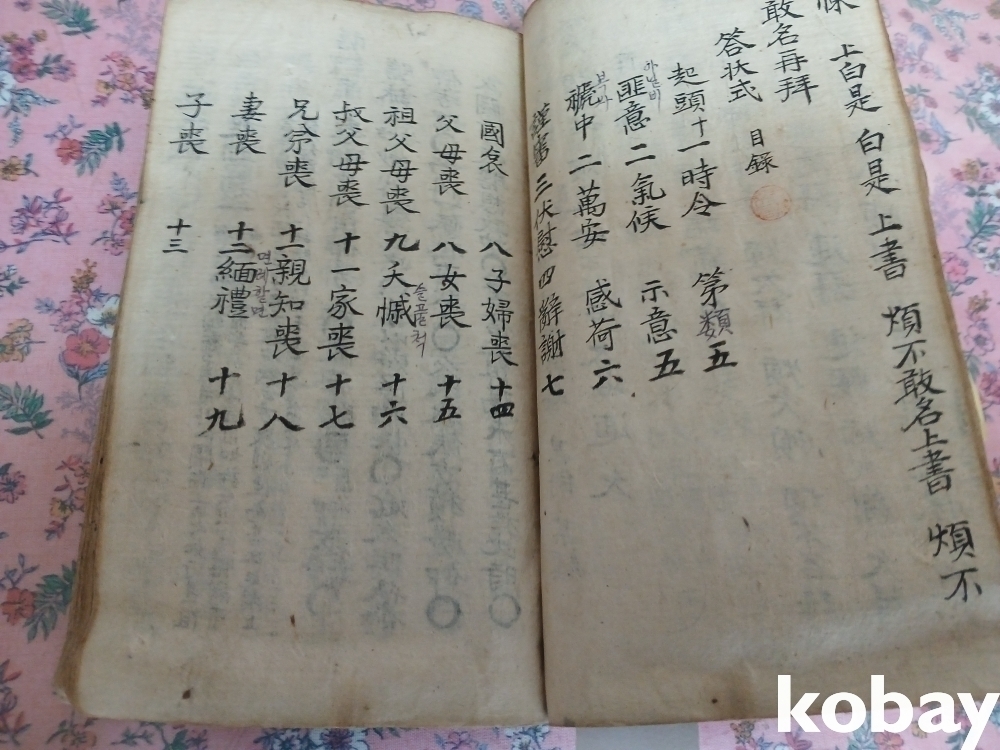 上白是 白是 上書 煩不敢名上書 煩不
敢名再拜
答狀式 目錄
起頭 十一時令 第類五
匪意 二氣候 示意五
아닐비
褫中 二萬安 感荷六
三伏慰 四辭謝 七
國哀 八子婦喪 十四
父母喪 八女喪 十五
祖父母喪 九夭慽 十六
슬플척
叔父母喪 十一家喪 十七
兄弟喪 十一親知喪 十八
妻喪 十二緬禮 十九
면례할면
子喪 十三
kobay